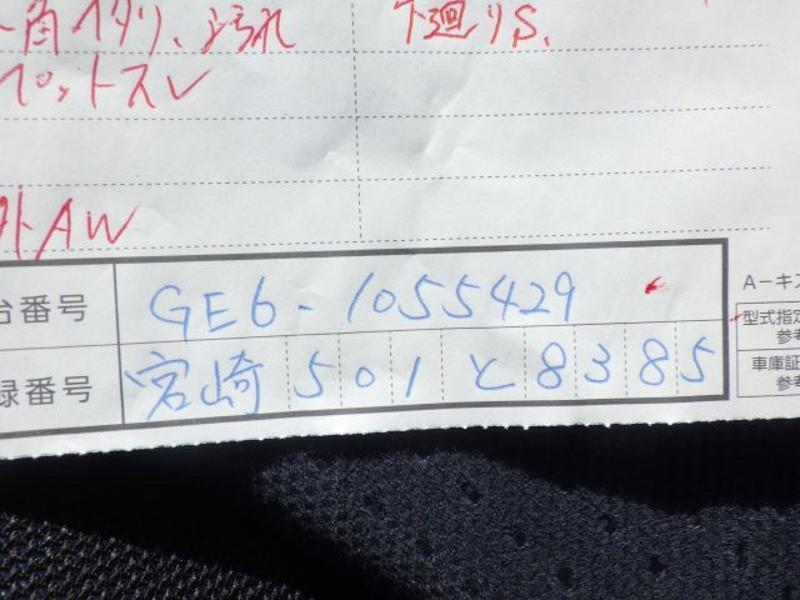 角イタリ、汚れ
下廻りS.
ペットスレ
外AW
台番号 GE6-1055429
録番号 宮崎 501 と 8385
A-キズ
型式指定
参考
車庫証
参考